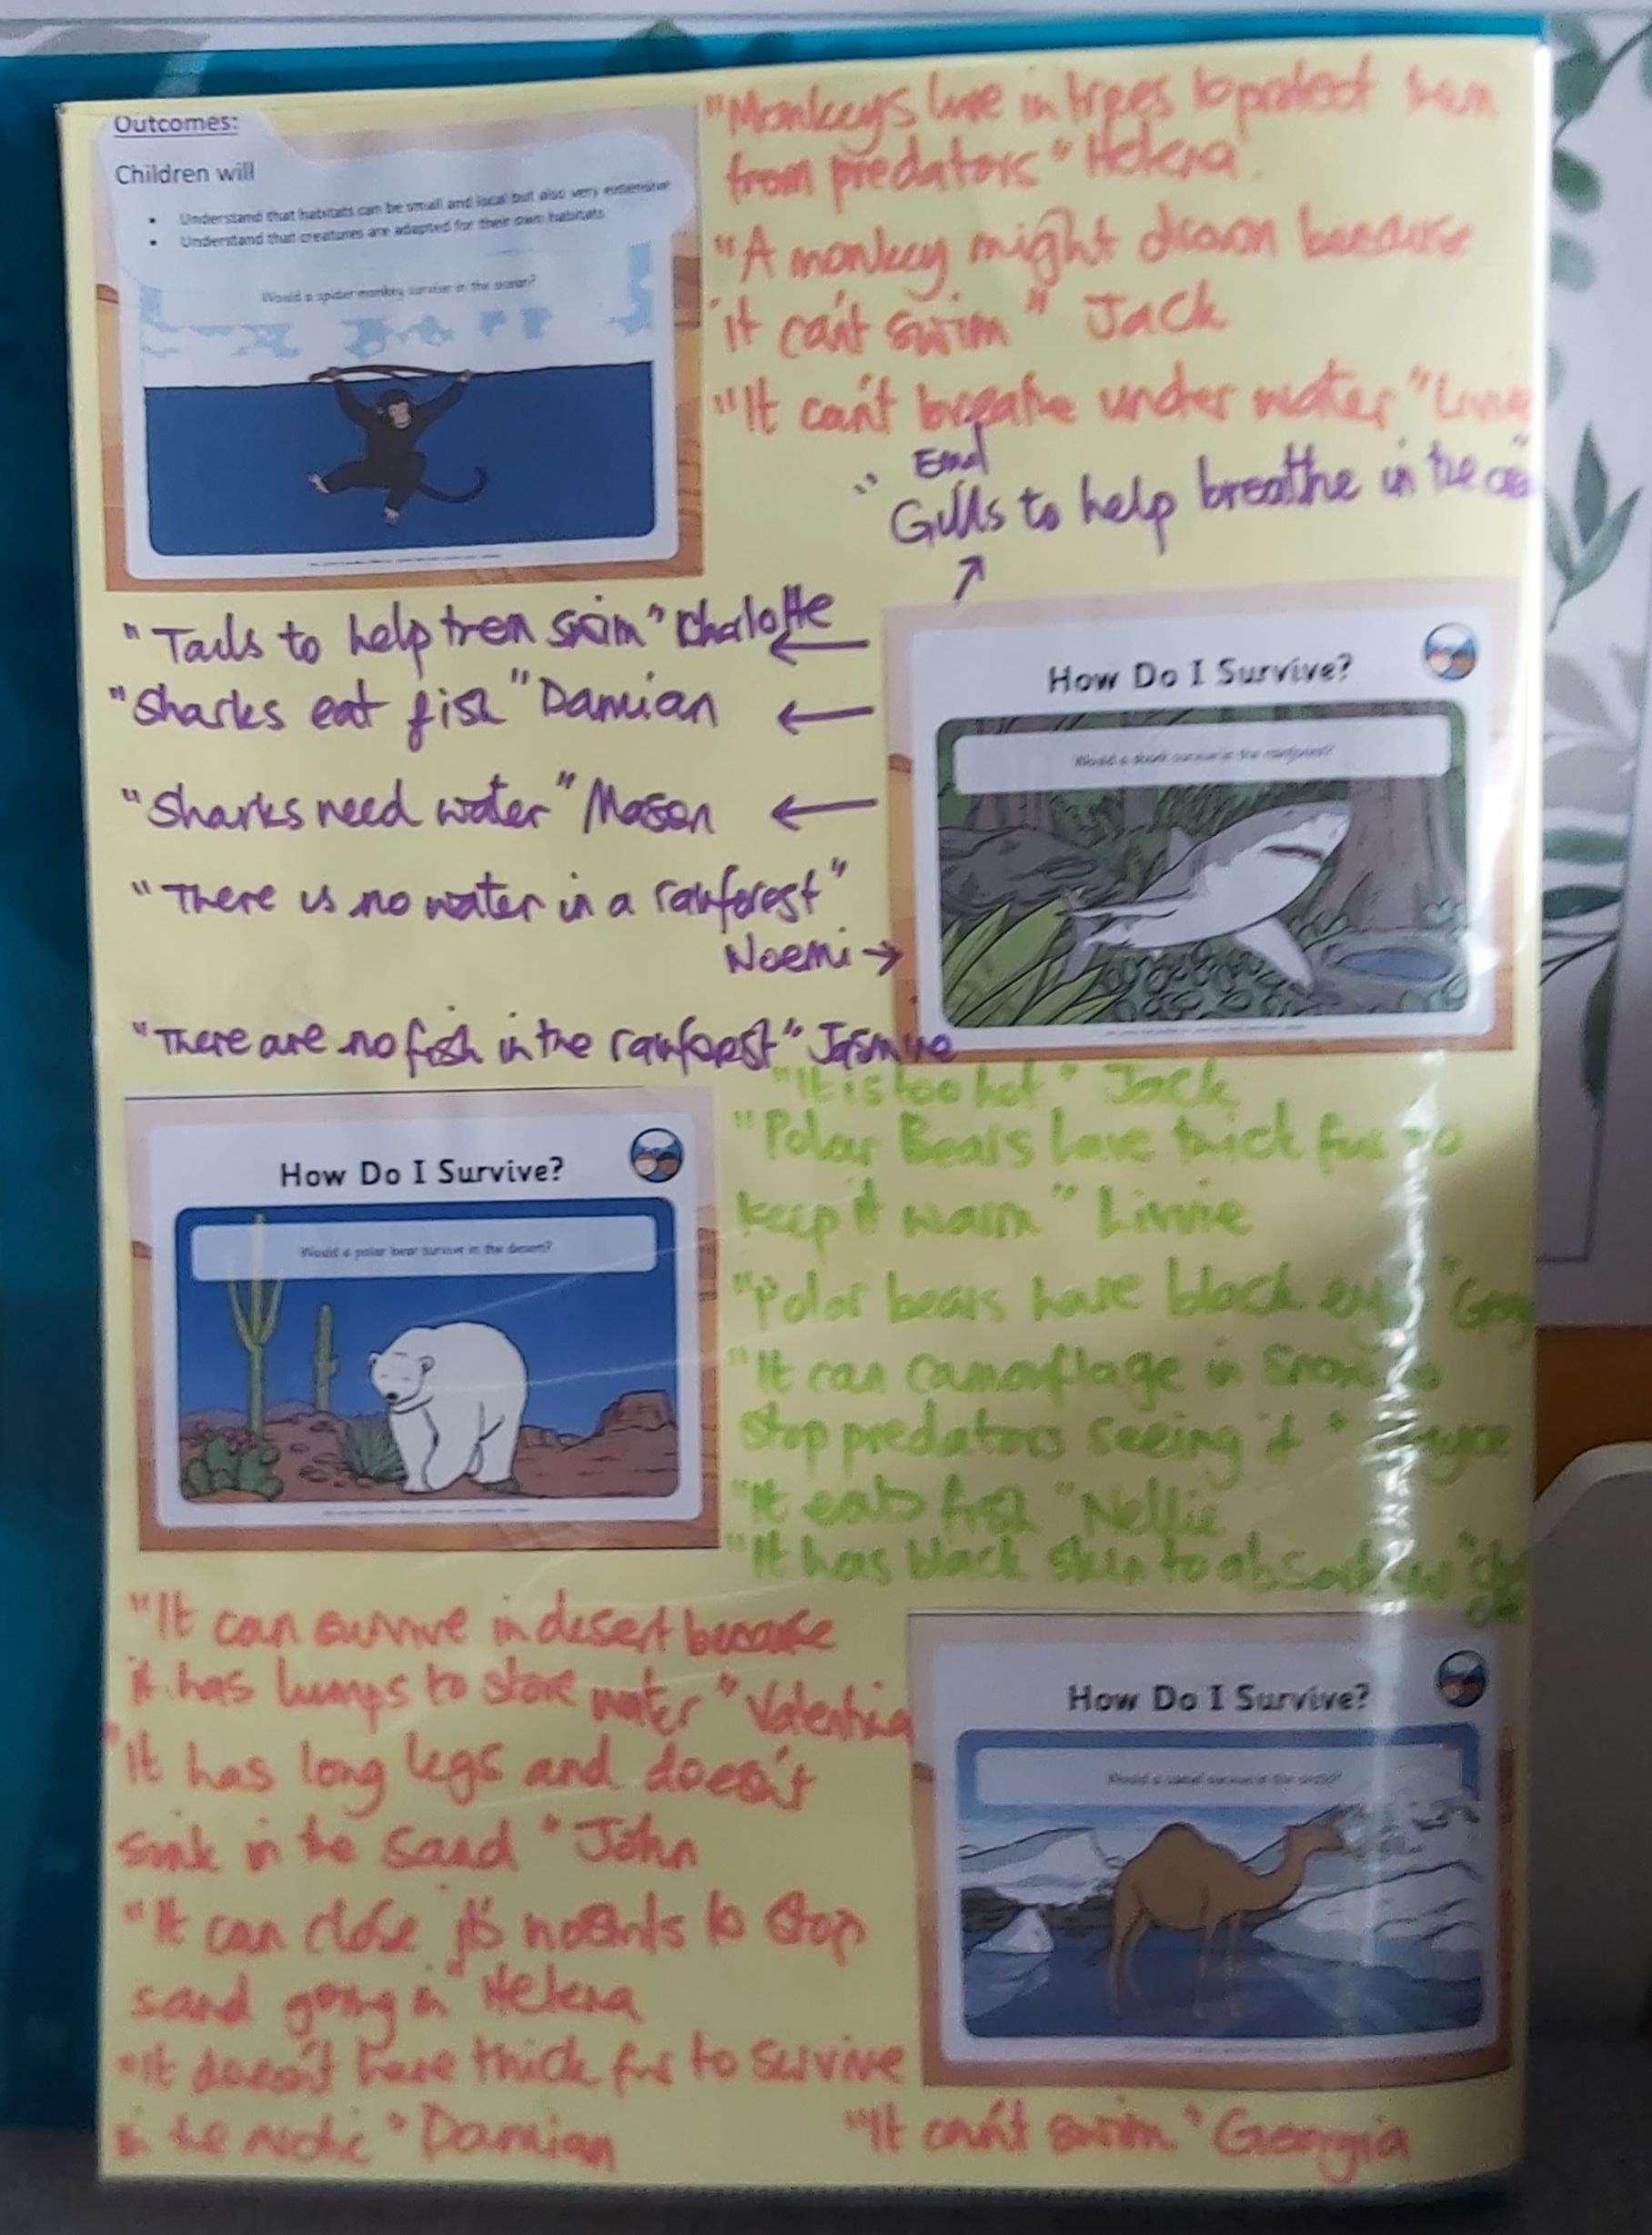 Outcomes:
Children will
• Understand that habitats can be small and local but also very extensive
• Understand that creatures are adapted for their own habitats
Would a spider monkey survive in the ocean?
"Monkeys live in trees to protect them
from predators" Helena
"A monkey might drown because
it can't swim" Jack
"It can't breathe under water"
"Gills to help breathe in the
"Tails to help them swim" Charlotte
"Sharks eat fish" Damian
"Sharks need water" Mason
"There is no water in a rainforest"
Noemi
"There are no fish in the rainforest" Jasmine
How Do I Survive?
Would a shark survive in the rainforest?
"It is too hot" Jack
"Polar Bears have thick fur to
keep it warm" Linnie
"Polar bears have black
"It can camorflage in snow to
stop predators seeing it"
"It eats fish" Nellie
"It has black skin to absorb
How Do I Survive?
Would a polar bear survive in the desert?
"It can survive in desert because
it has lumps to store water" Valentina
"It has long legs and doesn't
sink in the sand" John
"It can close it's nostrils to stop
sand going in" Helena
"It doesn't have thick fur to survive
in the arctic" Damian
"It can't swim" Georgia
How Do I Survive?
Would a camel survive in the arctic?